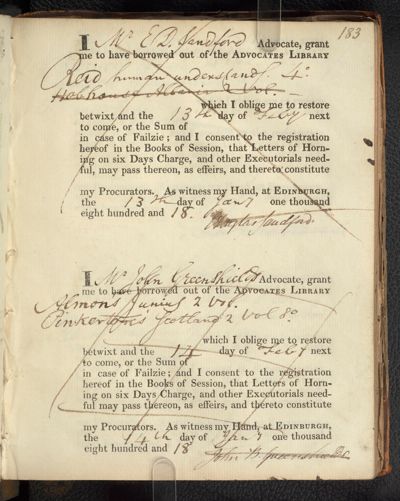 183
I Mr E D Sandford Advocate, grant
me to have borrowed out of the ADVOCATES LIBRARY
Reid human understandg. 4o
Hobhouse's Albania 2 Vol.
which I oblige me to restore
betwixt and the 13th day of Feby next
to come, or the Sum of
in case of Failzie; and I consent to the registration
hereof in the Books of Session, that Letters of Horn-
ing on six Days Charge, and other Executorials need-
ful, may pass thereon, as effeirs, and thereto constitute
my Procurators. As witness my Hand, at EDINBURGH,
the 13th day of Jany one thousand
eight hundred and 18.
Sandford
I Mr John Greenshields Advocate, grant
me to have borrowed out of the ADVOCATES LIBRARY
Almons Junius 2 Vol.
Pinkerton's Scotland 2 Vol 8o
which I oblige me to restore
betwixt and the 14 day of Feby next
to come, or the Sum of
in case of Failzie; and I consent to the registration
hereof in the Books of Session, that Letters of Horn-
ing on six Days Charge, and other Executorials need-
ful may pass thereon, as effeirs, and thereto constitute
my Procurators. As witness my Hand, at EDINBURGH,
the 14th day of Jany one thousand
eight hundred and 18
John Greenshields